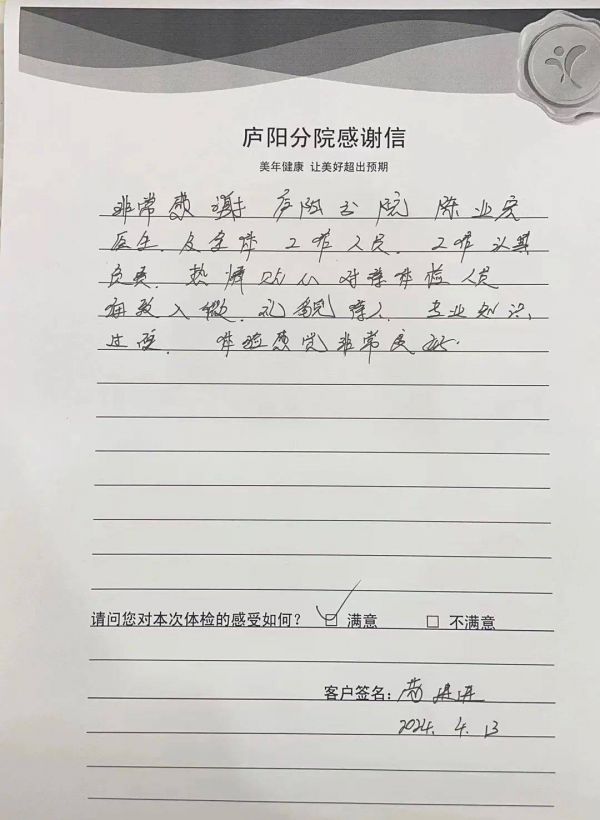 庐阳分院感谢信
美年健康 让美好超出预期
非常感谢庐阳分院陈业宏
医生.及全体工作人员.工作认真
负责.热情 对待体检人员
细致入微.礼貌待人.专业知识
过硬. 体验感觉非常良好.
请问您对本次体检的感受如何? ☑ 满意 □ 不满意
客户签名:
2024.4.13